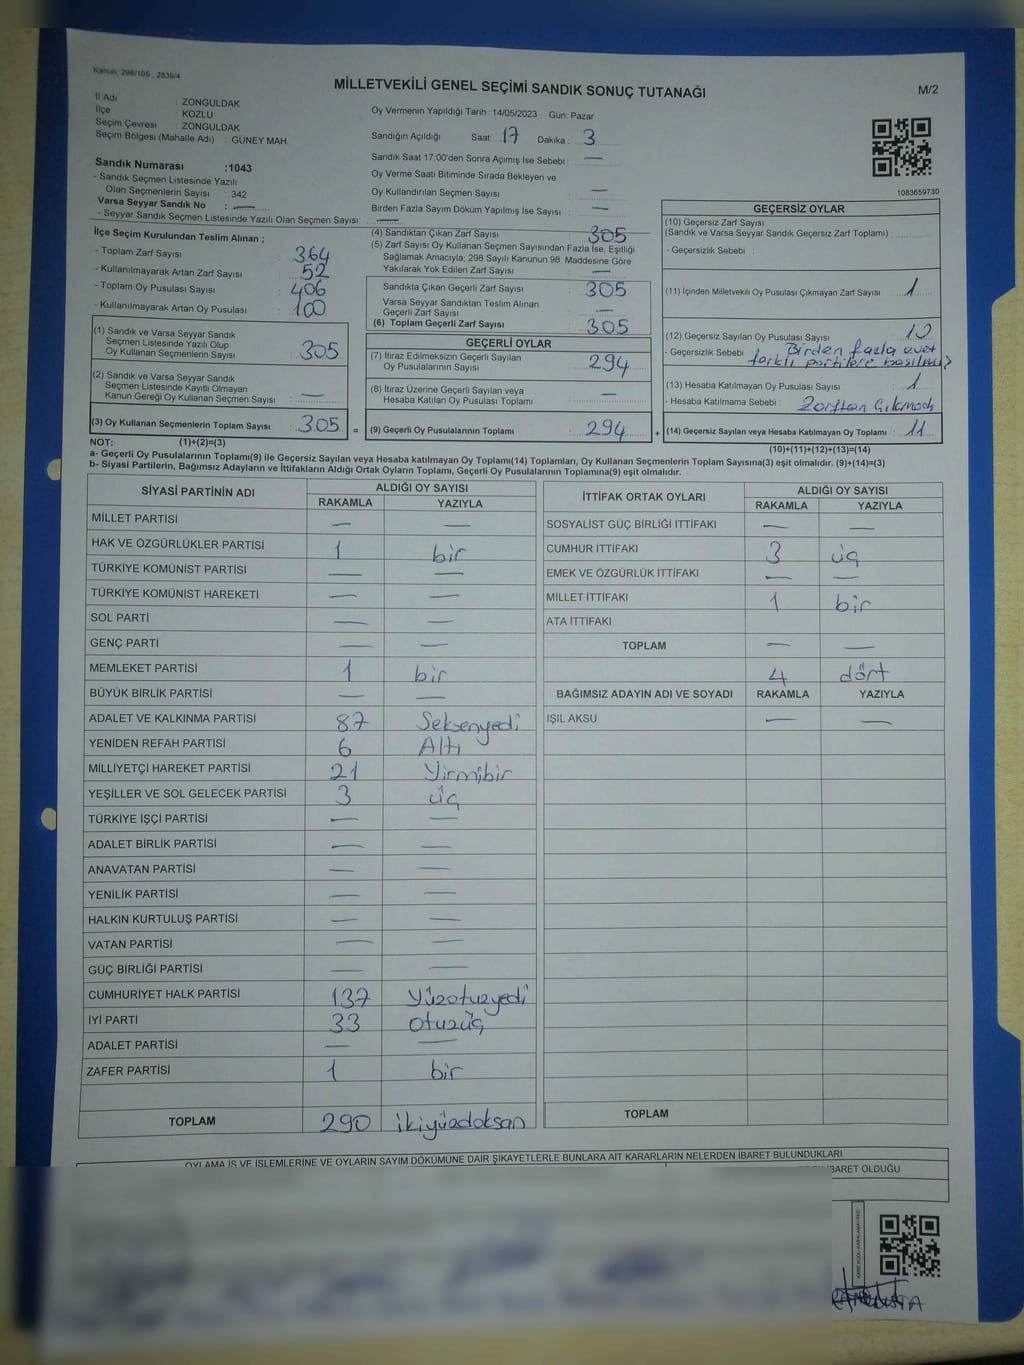 Kanun, 298/105 , 2839/4
MİLLETVEKİLİ GENEL SEÇİMİ SANDIK SONUÇ TUTANAĞI
M/2
İl Adı : ZONGULDAK
İlçe : KOZLU
Seçim Çevresi : ZONGULDAK
Seçim Bölgesi (Mahalle Adı) : GÜNEY MAH.
Sandık Numarası :1043
- Sandık Seçmen Listesinde Yazılı
Olan Seçmenlerin Sayısı : 342
Varsa Seyyar Sandık No : —
- Seyyar Sandık Seçmen Listesinde Yazılı Olan Seçmen Sayısı: —
Oy Vermenin Yapıldığı Tarih : 14/05/2023 Gün: Pazar
Sandığın Açıldığı Saat: 17 Dakika : 3
Sandık Saat 17:00'den Sonra Açımış İse Sebebi : —
Oy Verme Saati Bitiminde Sırada Bekleyen ve
Oy Kullandırılan Seçmen Sayısı : —
Birden Fazla Sayım Döküm Yapılmış İse Sayısı : —
1083659730
İlçe Seçim Kurulundan Teslim Alınan ;
- Toplam Zarf Sayısı : 364
- Kullanılmayarak Artan Zarf Sayısı : 52
- Toplam Oy Pusulası Sayısı : 406
- Kullanılmayarak Artan Oy Pusulası : 100
(1) Sandık ve Varsa Seyyar Sandık
Seçmen Listesinde Yazılı Olup
Oy Kullanan Seçmenlerin Sayısı : 305
(2) Sandık ve Varsa Seyyar Sandık
Seçmen Listesinde Kayıtlı Olmayan
Kanun Gereği Oy Kullanan Seçmen Sayısı : —
(3) Oy Kullanan Seçmenlerin Toplam Sayısı : 305 =
(4) Sandıktan Çıkan Zarf Sayısı : 305
(5) Zarf Sayısı Oy Kullanan Seçmen Sayısından Fazla İse, Eşitliği
Sağlamak Amacıyla; 298 Sayılı Kanunun 98. Maddesine Göre
Yakılarak Yok Edilen Zarf Sayısı : —
Sandıkta Çıkan Geçerli Zarf Sayısı : 305
Varsa Seyyar Sandıktan Teslim Alınan
Geçerli Zarf Sayısı : —
(6) Toplam Geçerli Zarf Sayısı : 305
GEÇERLİ OYLAR
(7) İtiraz Edilmeksizin Geçerli Sayılan
Oy Pusulalarının Sayısı : 294
(8) İtiraz Üzerine Geçerli Sayılan veya
Hesaba Katılan Oy Pusulası Toplamı : —
(9) Geçerli Oy Pusulalarının Toplamı : 294 +
GEÇERSİZ OYLAR
(10) Geçersiz Zarf Sayısı
(Sandık ve Varsa Seyyar Sandık Geçersiz Zarf Toplamı) :
- Geçersizlik Sebebi :
(11) İçinden Milletvekili Oy Pusulası Çıkmayan Zarf Sayısı : 1
(12) Geçersiz Sayılan Oy Pusulası Sayısı :
- Geçersizlik Sebebi : Birden fazla evet
farklı partilere
(13) Hesaba Katılmayan Oy Pusulası Sayısı : 1
- Hesaba Katılmama Sebebi : Zarftan
(14) Geçersiz Sayılan veya Hesaba Katılmayan Oy Toplamı : 11
NOT: (1)+(2)=(3)
(10)+(11)+(12)+(13)=(14)
a- Geçerli Oy Pusulalarının Toplamı(9) ile Geçersiz Sayılan veya Hesaba katılmayan Oy Toplamı(14) Toplamları, Oy Kullanan Seçmenlerin Toplam Sayısına(3) eşit olmalıdır. (9)+(14)=(3)
b- Siyasi Partilerin, Bağımsız Adayların ve İttifakların Aldığı Ortak Oyların Toplamı, Geçerli Oy Pusulalarının Toplamına(9) eşit olmalıdır.
SİYASİ PARTİNİN ADI ALDIĞI OY SAYISI
RAKAMLA YAZIYLA
MİLLET PARTİSİ — —
HAK VE ÖZGÜRLÜKLER PARTİSİ 1 bir
TÜRKİYE KOMÜNİST PARTİSİ — —
TÜRKİYE KOMÜNİST HAREKETİ — —
SOL PARTİ — —
GENÇ PARTİ — —
MEMLEKET PARTİSİ 1 bir
BÜYÜK BİRLİK PARTİSİ — —
ADALET VE KALKINMA PARTİSİ 87 Seksenyedi
YENİDEN REFAH PARTİSİ 6 Altı
MİLLİYETÇİ HAREKET PARTİSİ 21 Yirmibir
YEŞİLLER VE SOL GELECEK PARTİSİ 3 üç
TÜRKİYE İŞÇİ PARTİSİ — —
ADALET BİRLİK PARTİSİ — —
ANAVATAN PARTİSİ — —
YENİLİK PARTİSİ — —
HALKIN KURTULUŞ PARTİSİ — —
VATAN PARTİSİ — —
GÜÇ BİRLİĞİ PARTİSİ — —
CUMHURİYET HALK PARTİSİ 137 Yüzotuzyedi
İYİ PARTİ 33 Otuzüç
ADALET PARTİSİ — —
ZAFER PARTİSİ 1 bir
TOPLAM 290 ikiyüzdoksan
İTTİFAK ORTAK OYLARI ALDIĞI OY SAYISI
RAKAMLA YAZIYLA
SOSYALİST GÜÇ BİRLİĞİ İTTİFAKI — —
CUMHUR İTTİFAKI 3 üç
EMEK VE ÖZGÜRLÜK İTTİFAKI — —
MİLLET İTTİFAKI 1 bir
ATA İTTİFAKI
TOPLAM — —
4 dört
BAĞIMSIZ ADAYIN ADI VE SOYADI RAKAMLA YAZIYLA
IŞIL AKSU — —
TOPLAM
OYLAMA İŞ VE İŞLEMLERİNE VE OYLARIN SAYIM DÖKÜMÜNE DAİR ŞİKAYETLERLE BUNLARA AİT KARARLARIN NELERDEN İBARET BULUNDUKLARI
İBARET OLDUĞU